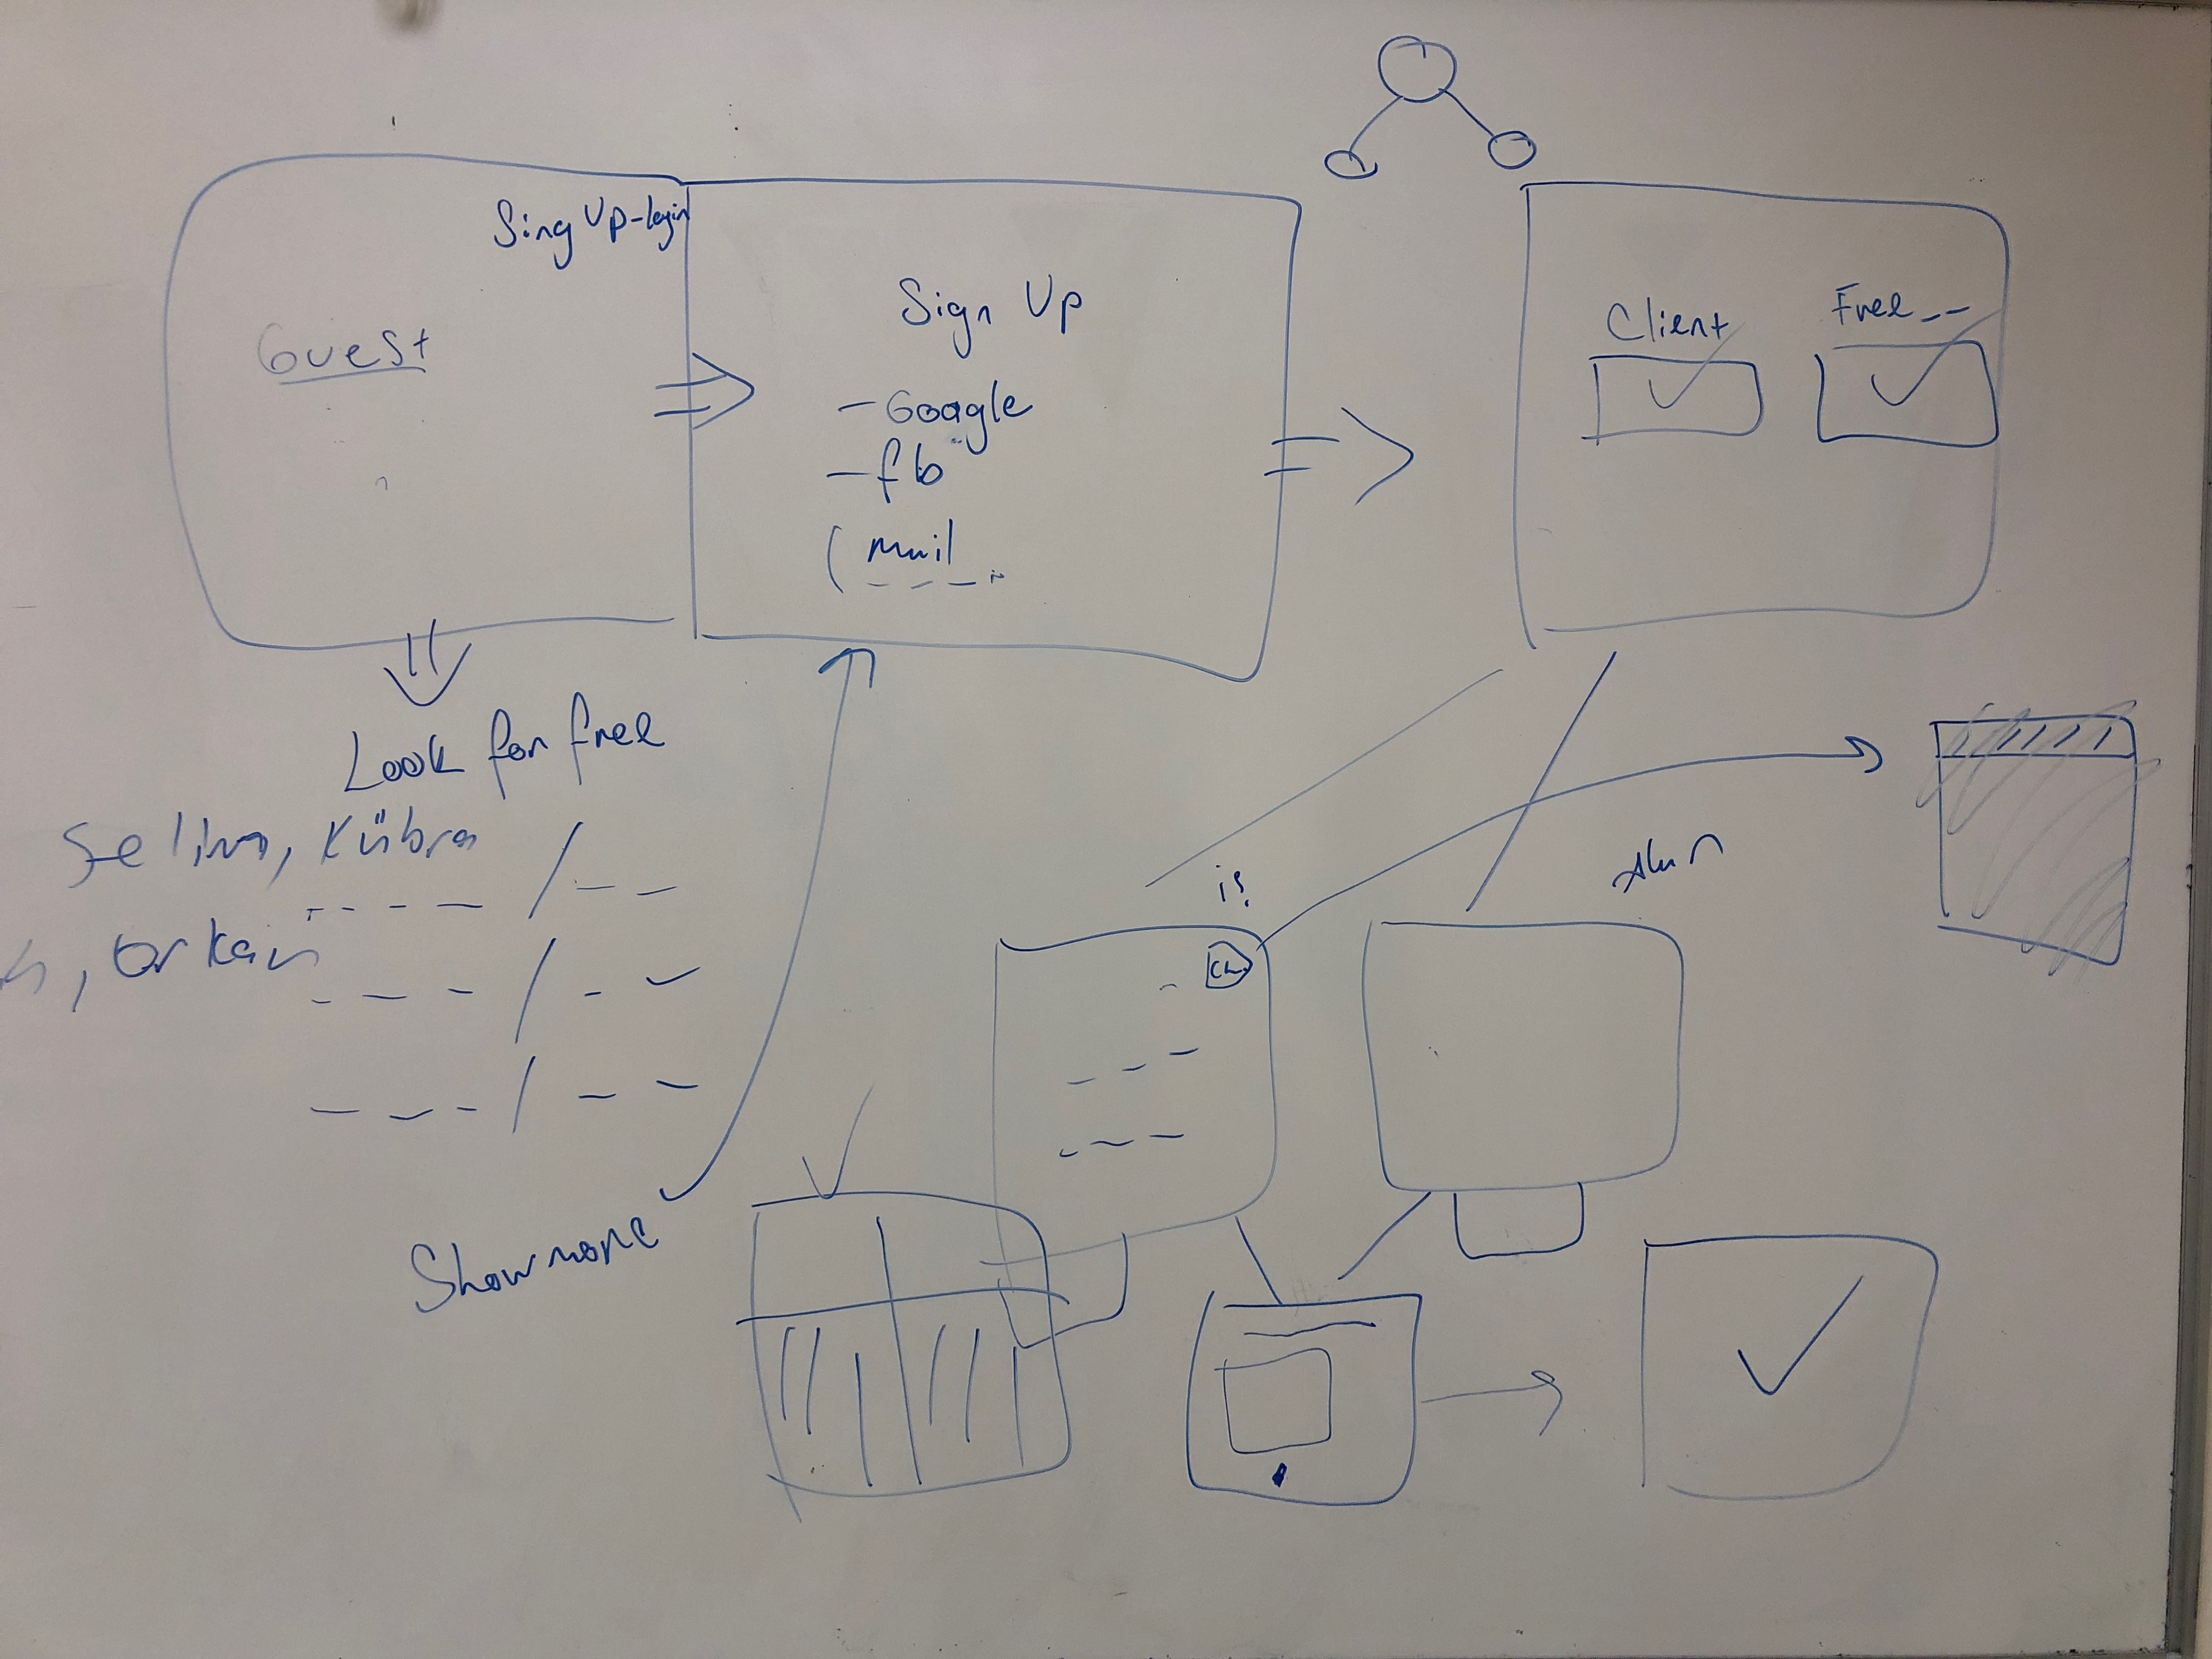 Sing Up-login
Guest
Sign Up
-Google
-fb
(mail
Client
Free--
Look for free
Selim, Kübra
, Orkan
Show more
iş